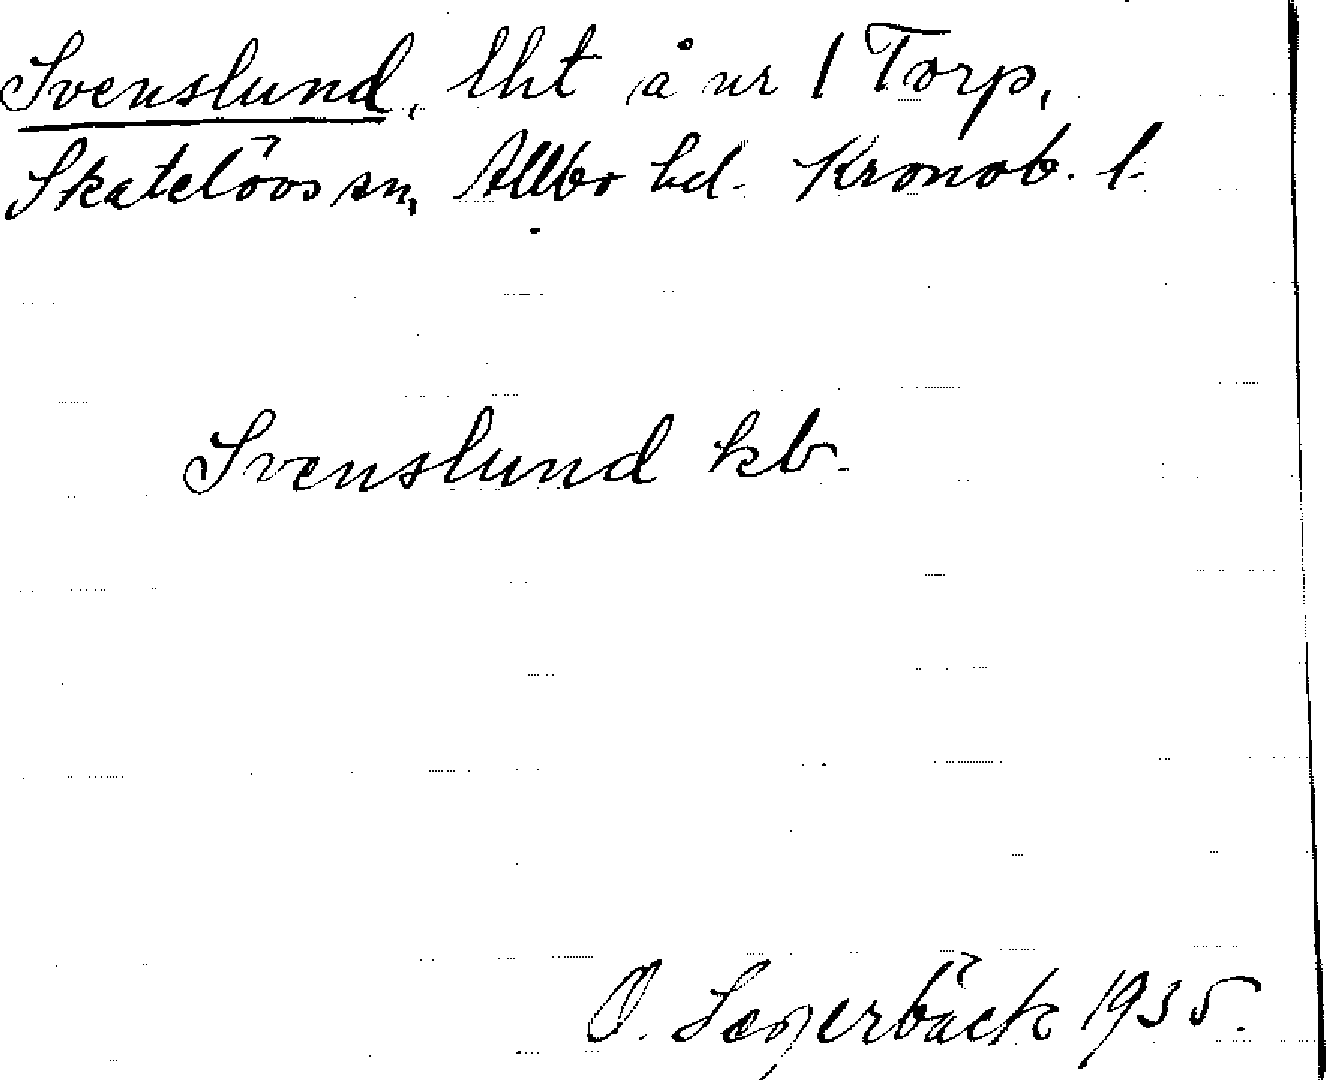 Svenslund, lht å nr 1 Torp,
Skatelövs sn, Allbo hd. Kronob. l.
Svenslund kb.
O. Segerbäck 1935.